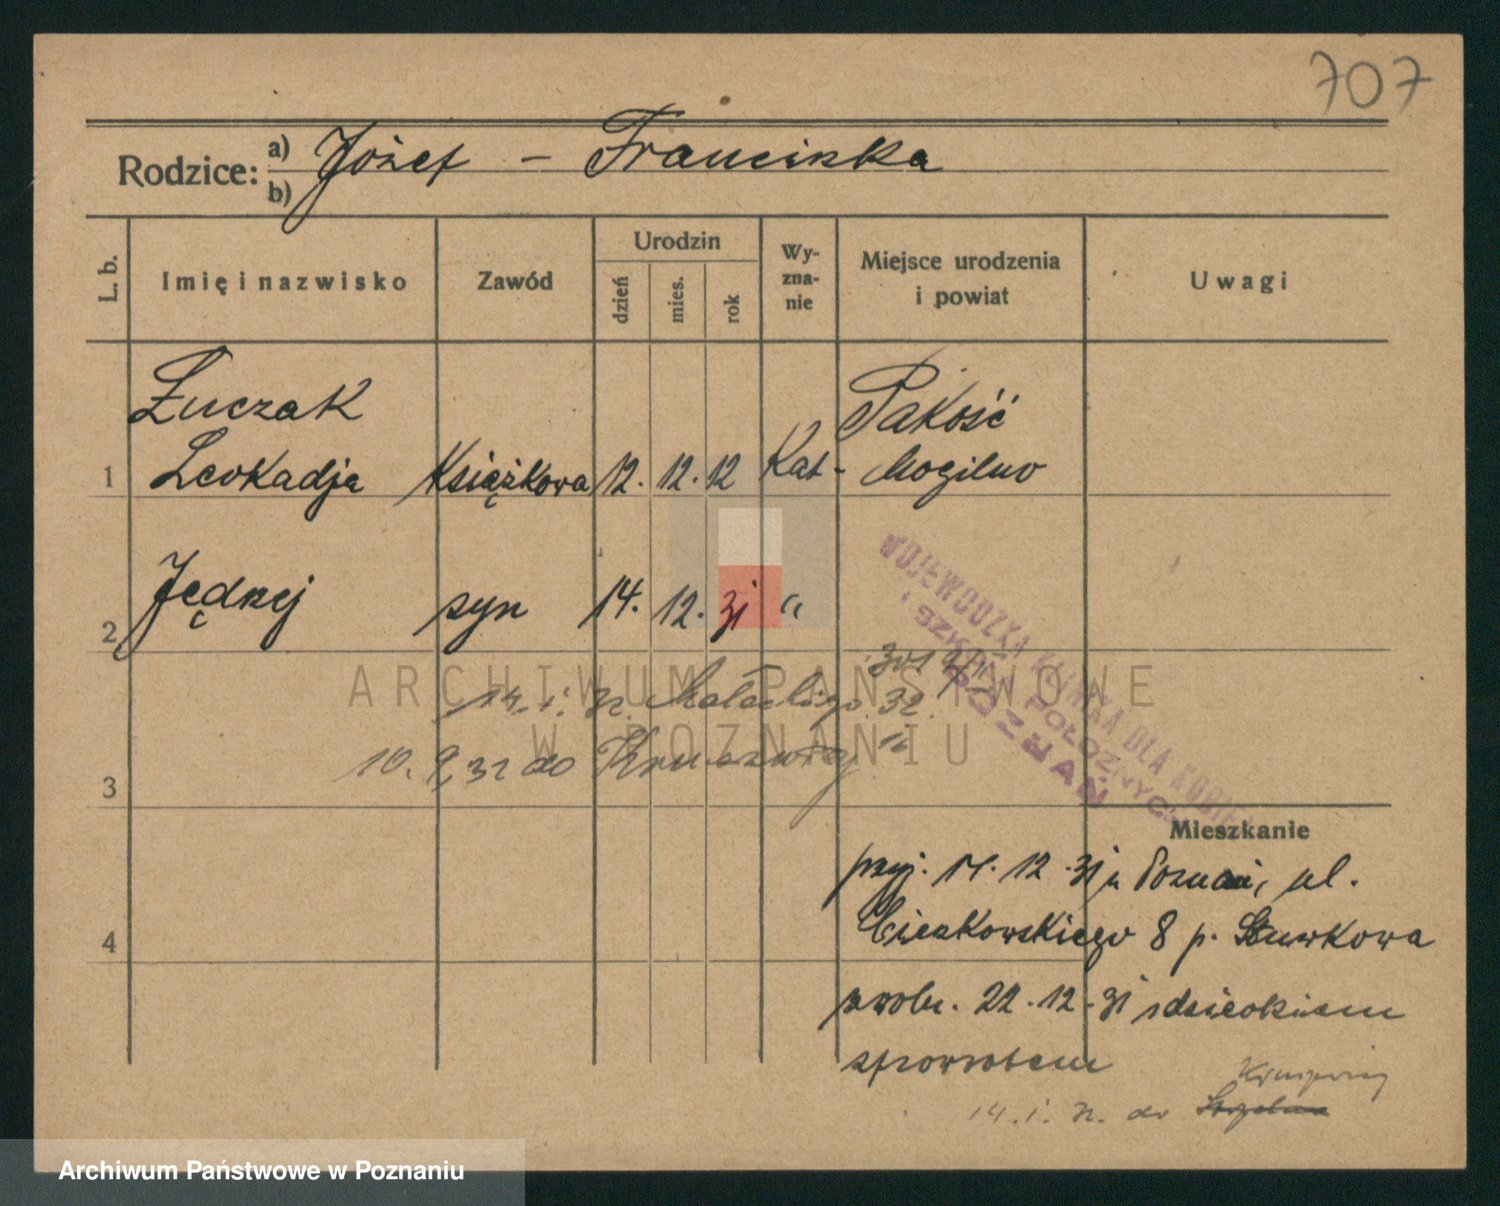 707
Rodzice: a) Józef – Franciszka
b)
L. b.
Imię i nazwisko
Zawód
Urodzin
dzień
mies.
rok
Wy-
zna-
nie
Miejsce urodzenia
i powiat
Uwagi
Łuczak
Pakość
1 Leokadja Książkowa 12. 12. 12 Kat- Mogilno
2 Jędrzej syn 14. 12. 31 "
WOJEWÓDZKA KLINIKA DLA KOBIET
I SZKOŁA POŁOŻNYCH
POZNAŃ
14. i. 32. 32.
10. 9, 32 do Kruszwicy
3
Mieszkanie
przyj. 14. 12. 31 z Poznania, ul.
4 Cieszkowskiego 8 p.
zwoln. 22. 12. 31 z dzieckiem
zpowrotem
14. i. 32. do
ARCHIWUM PAŃSTWOWE
W POZNANIU
Archiwum Państwowe w Poznaniu